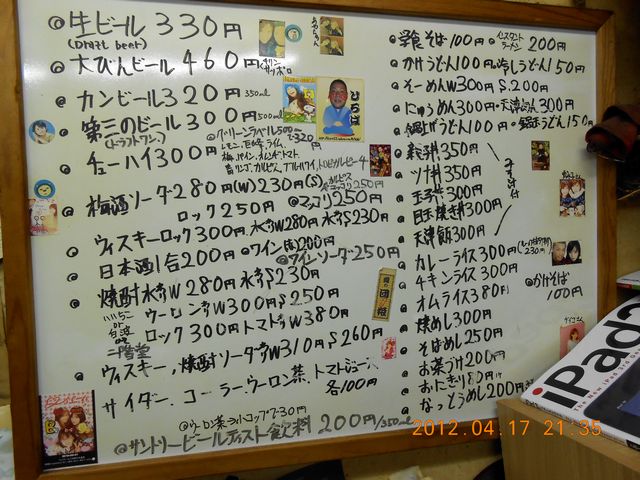 ◎生ビール 330円
(Draft beer)
◎大びんビール 460円
◎カンビール320円 350ml
◎第三のビール 300円 500ml
(ドラフトワン)
◎グリーンラベル500
で320円
◎チューハイ300円
レモン、巨峰、ライム、
梅、パイン、オレンヂ、トマト
青リンゴ、カルピス、ブルーハワイ、トロピカルピーチ
◎梅酒ソーダ280円(W)230円(S)
ロック250円
◎マッコリ250円
◎ウィスキーロック300円、水割W280円 水割S230円
◎日本酒1合200円◎ワイン200円
◎ワインソーダ250円
◎焼酎水割W280円 水割S230円
ウーロン割W300円S250円
ロック300円トマト割W380円
二階堂
◎ウィスキー、焼酎ソーダ割W310円S260円
サイダー、コーラー、ウーロン茶、トマトジュース、
各100円
◎ウーロン茶ライトコップで30円
◎サントリービールテイスト飲料 200円/350ml
そば100円
◎インスタントラーメン 200円
◎かけうどん100円◎冷しうどん150円
◎そーめんW300円S200円
◎にゅうめん300円・天津めん300円
うどん100円
うどん150円
丼350円
◎ツナ丼350円
◎玉子丼300円
◎目玉焼き丼300円
◎天津飯300円
みそ汁付
◎カレーライス300円
230円
◎チキンライス300円
◎かけそば
100円
◎オムライス380円
◎焼めし300円
◎そばめし250円
◎お茶づけ200円
◎おにぎり80円
◎なっとうめし200円
ひらば
iPad2
2012.04.17 21:35